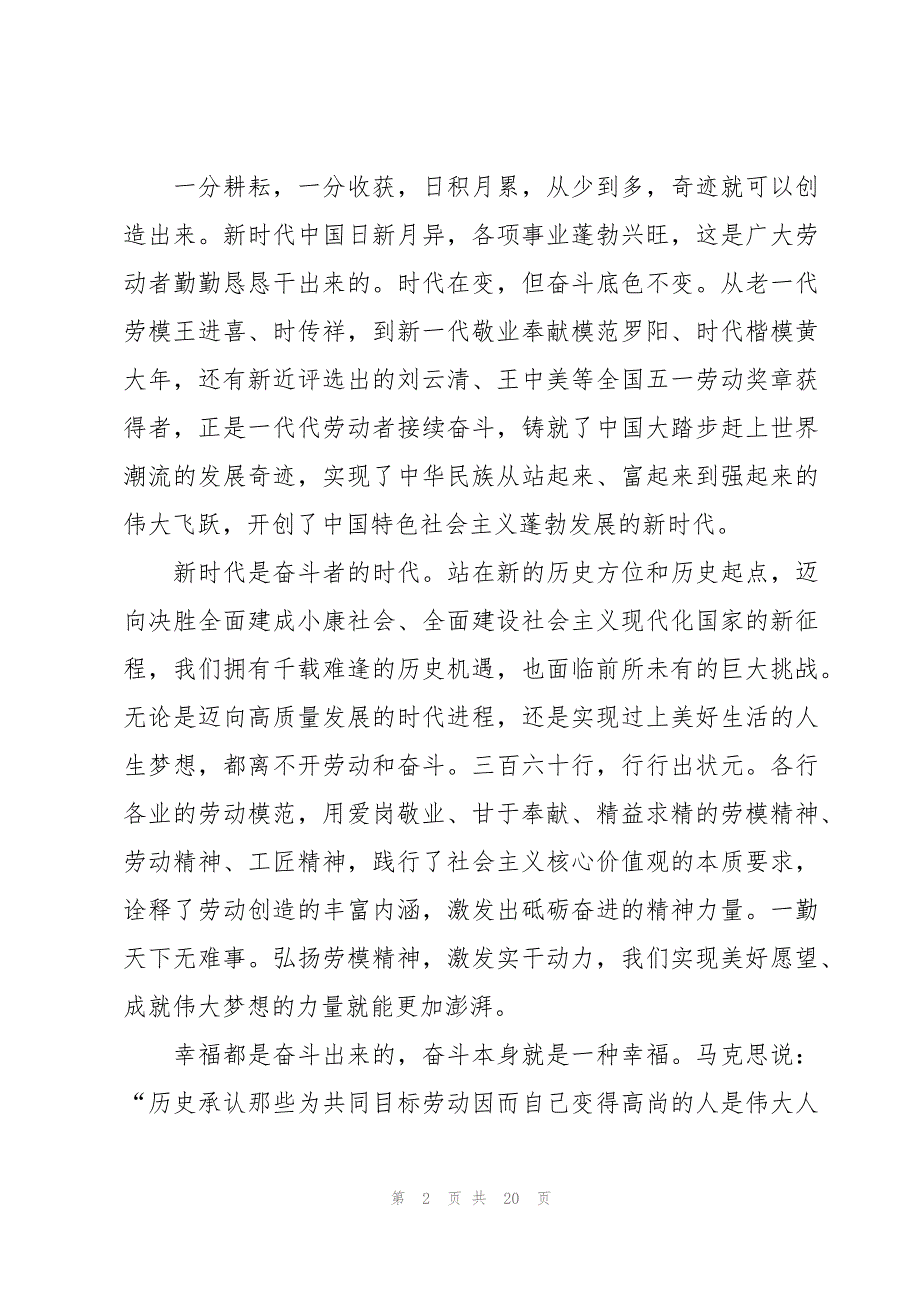 一分耕耘，一分收获，日积月累，从少到多，奇迹就可以创
造出来。新时代中国日新月异，各项事业蓬勃兴旺，这是广大劳
动者勤勤恳恳干出来的。时代在变，但奋斗底色不变。从老一代
劳模王进喜、时传祥，到新一代敬业奉献模范罗阳、时代楷模黄
大年，还有新近评选出的刘云清、王中美等全国五一劳动奖章获
得者，正是一代代劳动者接续奋斗，铸就了中国大踏步赶上世界
潮流的发展奇迹，实现了中华民族从站起来、富起来到强起来的
伟大飞跃，开创了中国特色社会主义蓬勃发展的新时代。
新时代是奋斗者的时代。站在新的历史方位和历史起点，迈
向决胜全面建成小康社会、全面建设社会主义现代化国家的新征
程，我们拥有千载难逢的历史机遇，也面临前所未有的巨大挑战。
无论是迈向高质量发展的时代进程，还是实现过上美好生活的人
生梦想，都离不开劳动和奋斗。三百六十行，行行出状元。各行
各业的劳动模范，用爱岗敬业、甘于奉献、精益求精的劳模精神、
劳动精神、工匠精神，践行了社会主义核心价值观的本质要求，
诠释了劳动创造的丰富内涵，激发出砥砺奋进的精神力量。一勤
天下无难事。弘扬劳模精神，激发实干动力，我们实现美好愿望、
成就伟大梦想的力量就能更加澎湃。
幸福都是奋斗出来的，奋斗本身就是一种幸福。马克思说：
“历史承认那些为共同目标劳动因而自己变得高尚的人是伟大人
第 2 页 共 20 页